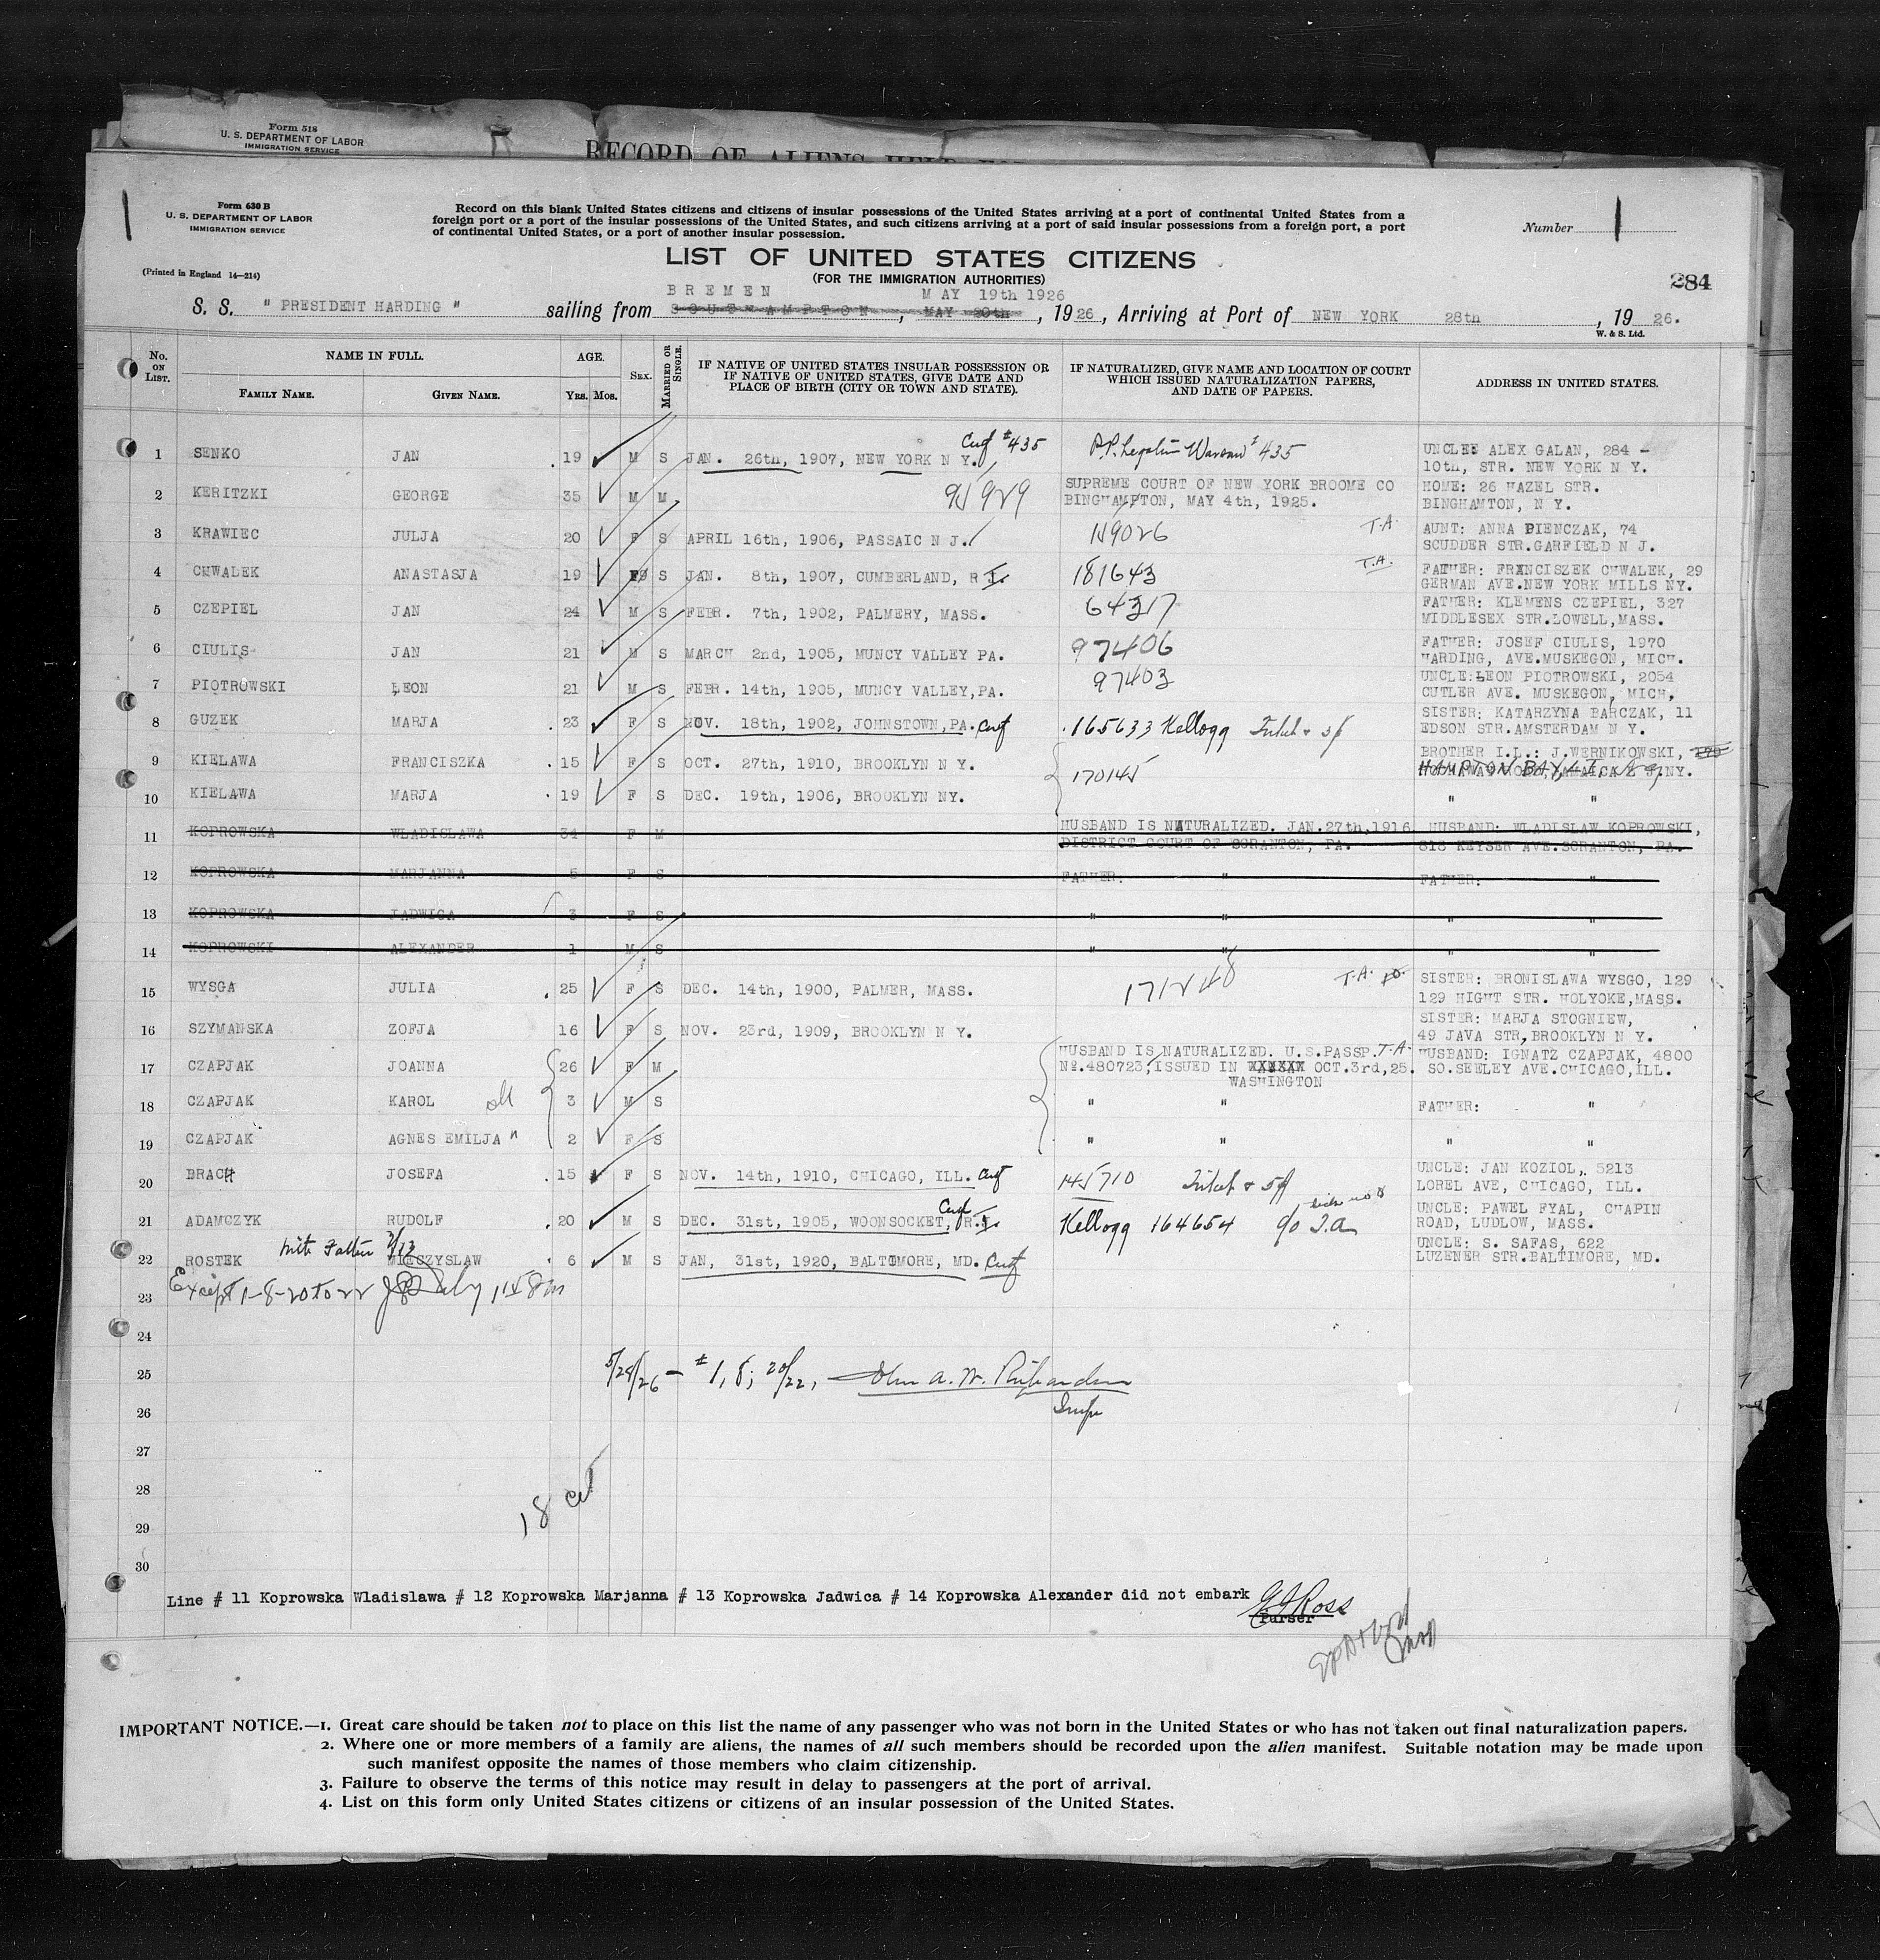 Form 518
U. S. DEPARTMENT OF LABOR
IMMIGRATION SERVICE
RECORD OF ALIENS HELD
Form 630 B
U. S. DEPARTMENT OF LABOR
IMMIGRATION SERVICE
(Printed in England 14—214)
Record on this blank United States citizens and citizens of insular possessions of the United States arriving at a port of continental United States from a
foreign port or a port of the insular possessions of the United States, and such citizens arriving at a port of said insular possessions from a foreign port, a port
of continental United States, or a port of another insular possession.
Number 1
LIST OF UNITED STATES CITIZENS
(FOR THE IMMIGRATION AUTHORITIES)
284
BREMEN MAY 19th 1926
S. S. " PRESIDENT HARDING " sailing from SOUTHAMPTON, MAY 20th, 1926, Arriving at Port of NEW YORK 28th, 1926.
W. & S. Ltd.
No. ON LIST. NAME IN FULL. AGE. SEX. MARRIED OR SINGLE. IF NATIVE OF UNITED STATES INSULAR POSSESSION OR IF NATIVE OF UNITED STATES, GIVE DATE AND PLACE OF BIRTH (CITY OR TOWN AND STATE). IF NATURALIZED, GIVE NAME AND LOCATION OF COURT WHICH ISSUED NATURALIZATION PAPERS, AND DATE OF PAPERS. ADDRESS IN UNITED STATES.
FAMILY NAME. GIVEN NAME. YRS. MOS.
1 SENKO JAN 19 M S JAN. 26th, 1907, NEW YORK N Y. #435 Warsaw #435 UNCLE: ALEX GALAN, 284 -
10th, STR. NEW YORK N Y.
2 KERITZKI GEORGE 35 M M 95929 SUPREME COURT OF NEW YORK BROOME CO HOME: 26 HAZEL STR.
BINGHAMPTON, MAY 4th, 1925. BINGHAMTON, N Y.
3 KRAWIEC JULJA 20 F S APRIL 16th, 1906, PASSAIC N J. 119026 T.A. AUNT: ANNA PIENCZAK, 74
SCUDDER STR.GARFIELD N J.
4 CHWALEK ANASTASJA 19 F S JAN. 8th, 1907, CUMBERLAND, R I. 181643 T.A. FATHER: FRANCISZEK CHWALEK, 29
GERMAN AVE.NEW YORK MILLS NY.
5 CZEPIEL JAN 24 M S FEBR. 7th, 1902, PALMERY, MASS. 64317 FATHER: KLEMENS CZEPIEL, 327
MIDDLESEX STR.LOWELL,MASS.
6 CIULIS JAN 21 M S MARCH 2nd, 1905, MUNCY VALLEY PA. 97406 FATHER: JOSEF CIULIS, 1970
HARDING, AVE.MUSKEGON, MICH.
7 PIOTROWSKI LEON 21 M S FEBR. 14th, 1905, MUNCY VALLEY,PA. 97403 UNCLE:LEON PIOTROWSKI, 2054
CUTLER AVE. MUSKEGON, MICH,
8 GUZEK MARJA 23 F S NOV. 18th, 1902, JOHNSTOWN,PA. 165633 Kellogg SISTER: KATARZYNA BARCZAK, 11
EDSON STR.AMSTERDAM N Y.
9 KIELAWA FRANCISZKA 15 F S OCT. 27th, 1910, BROOKLYN N Y. 170145 BROTHER I.L.: J.WERNIKOWSKI,
HAMPTON BAY L.I.
10 KIELAWA MARJA 19 F S DEC. 19th, 1906, BROOKLYN NY. " "
11 KOPROWSKA WLADISLAWA 34 F M HUSBAND IS NATURALIZED. JAN.27th,1916 HUSBAND: WLADISLAW KOPROWSKI,
DISTRICT COURT OF SCRANTON, PA. 818 KEYSER AVE.SCRANTON, PA.
12 KOPROWSKA MARJANNA 5 F S FATHER: " FATHER: "
13 KOPROWSKA JADWICA 3 F S " " " "
14 KOPROWSKI ALEXANDER 1 M S " " " "
15 WYSGA JULIA 25 F S DEC. 14th, 1900, PALMER, MASS. 171248 T.A. SISTER: BRONISLAWA WYSGO, 129
129 HIGHT STR. HOLYOKE,MASS.
16 SZYMANSKA ZOFJA 16 F S NOV. 23rd, 1909, BROOKLYN N Y. SISTER: MARJA STOGNIEW,
49 JAVA STR,BROOKLYN N Y.
17 CZAPJAK JOANNA 26 F M HUSBAND IS NATURALIZED. U.S.PASSP. T.A. HUSBAND: IGNATZ CZAPJAK, 4800
No.480723,ISSUED IN XXXXXX OCT.3rd,25. SO.SEELEY AVE.CHICAGO,ILL.
WASHINGTON
18 CZAPJAK KAROL 3 M S " " FATHER: "
19 CZAPJAK AGNES EMILJA 2 F S " " " "
20 BRACH JOSEFA 15 F S NOV. 14th, 1910, CHICAGO, ILL. 145710 UNCLE: JAN KOZIOL, 5213
LOREL AVE, CHICAGO, ILL.
21 ADAMCZYK RUDOLF 20 M S DEC. 31st, 1905, WOONSOCKET, R.I. Kellogg 164654 UNCLE: PAWEL FYAL, CHAPIN
ROAD, LUDLOW, MASS.
22 ROSTEK MIECZYSLAW 6 M S JAN, 31st, 1920, BALTIMORE, MD. UNCLE: S. SAFAS, 622
LUZENER STR.BALTIMORE, MD.
23 Except 1-8-20 to 22
24
25 5/28/26 - #1, 8; 20/22, John A. W. Richardson
26 Insp
27
28
18 cit
29
30
Line # 11 Koprowska Wladislawa # 12 Koprowska Marjanna # 13 Koprowska Jadwica # 14 Koprowska Alexander did not embark Ross
Purser
IMPORTANT NOTICE.—1. Great care should be taken not to place on this list the name of any passenger who was not born in the United States or who has not taken out final naturalization papers.
2. Where one or more members of a family are aliens, the names of all such members should be recorded upon the alien manifest. Suitable notation may be made upon
such manifest opposite the names of those members who claim citizenship.
3. Failure to observe the terms of this notice may result in delay to passengers at the port of arrival.
4. List on this form only United States citizens or citizens of an insular possession of the United States.